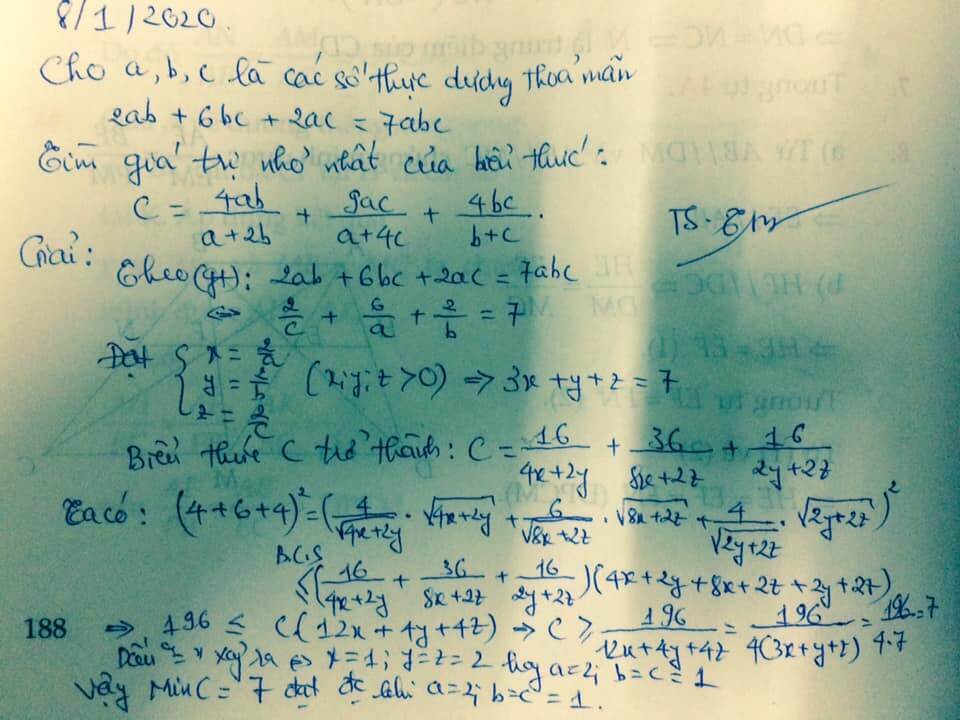 8/1/2020
Cho a, b, c là các số thực dương thoả mãn
2ab + 6bc + 2ac = 7abc
Tìm giá trị nhỏ nhất của biểu thức:
C = 4ab/(a+2b) + 9ac/(a+4c) + 4bc/(b+c).
Giải:
Theo (gt): 2ab + 6bc + 2ac = 7abc
⇔ 2/c + 6/a + 2/b = 7
Đặt { x = 2/a
y = 2/b (x; y; z > 0) ⇒ 3x + y + z = 7
z = 2/c
Biểu thức C trở thành: C = 16/(4x+2y) + 36/(8x+2z) + 16/(2y+2z)
Ta có: (4+6+4)² = (4/√(4x+2y) · √(4x+2y) + 6/√(8x+2z) · √(8x+2z) + 4/√(2y+2z) · √(2y+2z))²
B.C.S
≤ (16/(4x+2y) + 36/(8x+2z) + 16/(2y+2z)) (4x+2y+8x+2z+2y+2z)
188
⇒ 196 ≤ C(12x+4y+4z) ⇒ C ≥ 196/(12x+4y+4z) = 196/(4(3x+y+z)) = 196/(4.7) = 7
Dấu "=" xảy ra ⇔ x=1; y=z=2 hay a=2; b=c=1
Vậy Min C = 7 đạt đc khi a=2; b=c=1.
⇒ DN = NC ⇒ N là trung điểm của CD
7. Tương tự 1A.